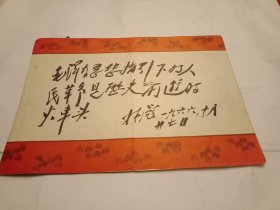 毛泽东思想指引下的人
民革命是历史前进的
火车头
林彪 一九六六、十月
廿七日